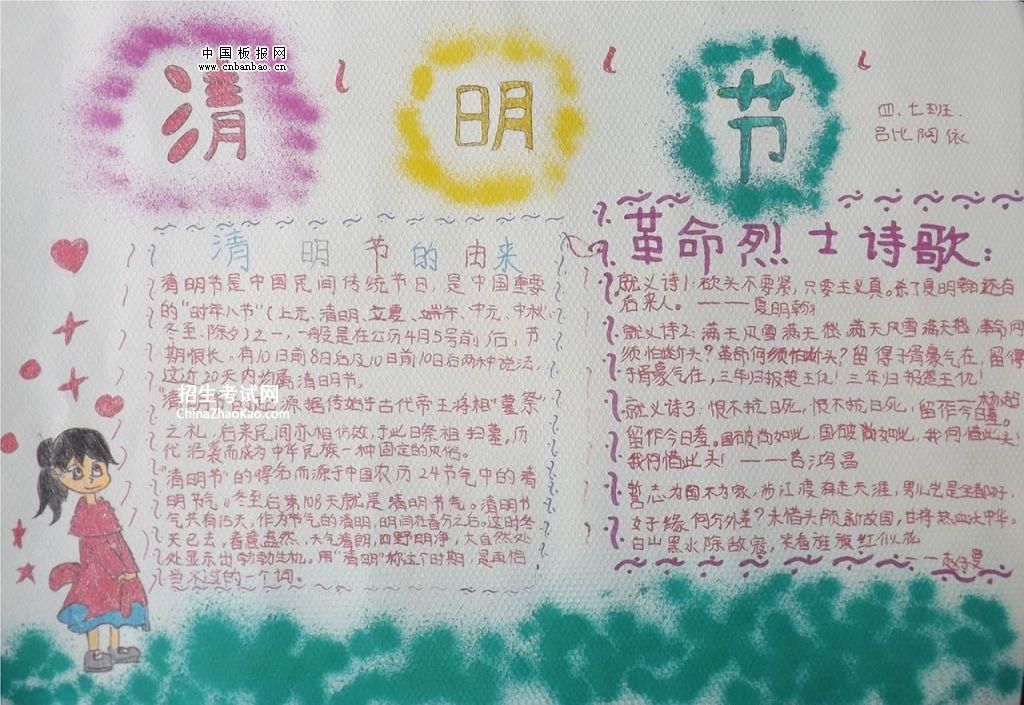 中国板报网
www.cnbanbao.cn
清明节
四、七班
吕比阿依
清明节的由来
清明节是中国民间传统节日，是中国重要
的“时年八节”（上元、清明、立夏、端午、中元、中秋、
冬至、除夕）之一，一般是在公历4月5号前后，节
期很长，有10日前8日后及10日前10日后两种说法，
这近20天内均属清明节。
源据传始于古代帝王将相“墓祭”
之礼，后来民间亦相仿效，于此日祭祖扫墓，历
代沿袭而成为中华民族一种固定的风俗。
“清明节”的得名而源于中国农历24节气中的清
明节气。冬至后第108天就是清明节气。清明节
气共有15天，作为节气的清明，时间在春分之后。这时冬
天已去，春意盎然，天气清朗，四野明净，大自然处
处显示出勃勃生机。用“清明”称这个时期，是再恰
当不过的一个词。
招生考试网
ChinaZhaoKao.com
革命烈士诗歌：
就义诗1：砍头不要紧，只要主义真。杀了夏明翰，还有
后来人。———夏明翰
就义诗2：满天风雪满天愁，满天风雪满天愁，革命何
须怕断头？革命何须怕断头？留得子胥豪气在，留得
子胥豪气在，三年归报楚王仇！三年归报楚王仇！
——杨超
就义诗3：恨不抗日死，恨不抗日死，留作今日羞。
留作今日羞。国破尚如此，国破尚如此，我何惜此头！
我何惜此头！——吉鸿昌
誓志为国不为家，涉江渡海走天涯，男儿岂是全都好，
女子缘何分外差？未惜头颅新故国，甘将热血沃中华。
白山黑水除敌寇，笑看旌旗红似花
——赵一曼